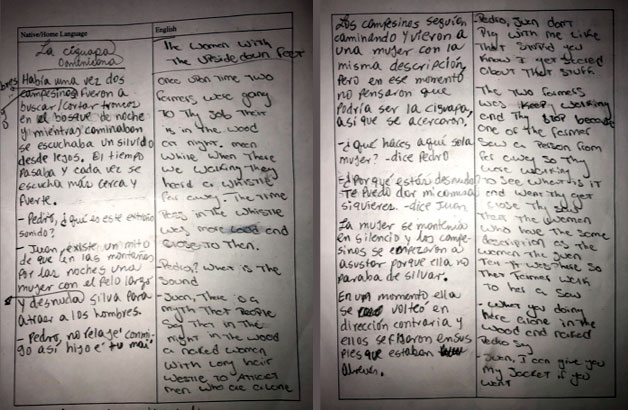 Native/Home Language
La ciguapa
Dominicana
Había una vez dos
campesinos fueron a
buscar/cortar troncos
en el bosque de noche
y mientras caminaban
se escuchaba un silvido
desde lejos. El tiempo
pasaba y cada vez se
escucha más cerca y
fuerte.
- Pedro, ¿Qué es este extraño
sonido?
- Juan, existe un mito
de que en las montañas
por las noches una
mujer con el pelo largo
y desnuda silva para
atraer a los hombres.
- Pedro, no relaje conmi-
go así hijo e' tu mai.
English
The women with
the upside down feet
once upon time two
farmers were going
to thy job their
is in the wood
at night. mean
while when there
we walking they
heard a whistle
far away. The time
pass in the whistle
was more loud and
close to then.
Pedro? what is the
sound
- Juan, there is a
myth that people
say that in the
night in the wood
a naked women
with long hair
westle to attract
men who are alone
Los campesinos seguían
caminando y vieron a
una mujer con la
misma descripción,
pero en ese momento
no pensaron que
podría ser la ciguapa,
así que se acercaron.
- ¿Qué haces aquí sola
mujer? - dice Pedro
- ¿Por qué estás desnuda?
Te puedo dar mi camisa
si quieres. - dice Juan
La mujer se mantenía
en silencio y los campe-
sinos se empezaron a
asustar porque ella no
paraba de silvar.
En un momento ella
se volteó en
dirección contraria y
ellos se fijaron en sus
pies que estaban
- Pedro, Juan don't
play with me like
that stupid you
know I get scared
about that stuff.
The two farmers
was keep working
and thy stop because
one of the farmer
saw a person from
far away so thy
were walking
to see what is it
and when thy get
close thy saw
that the women
who have the same
description as the
women the Juan
tell it was these so
that farmer walk
to her a saw
- what you doing
here alone in the
wood and naked
Pedro say
- Juan, I can give you
my Jacket if you
want